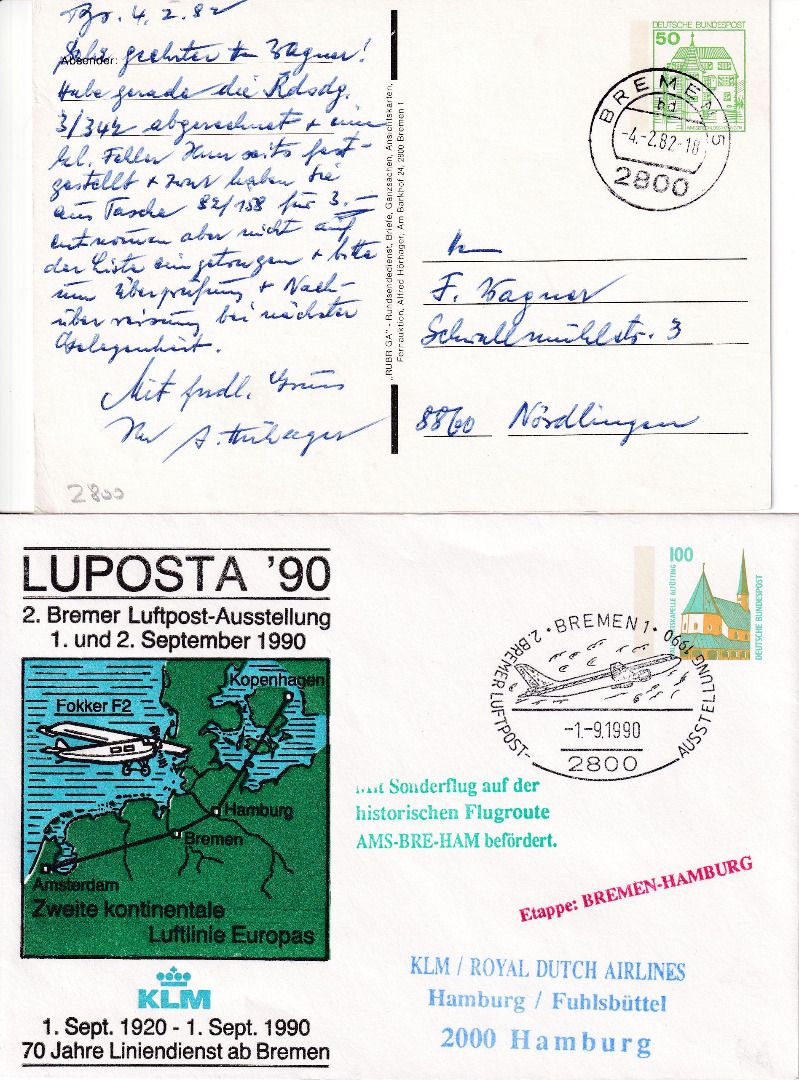 Br. 4.2.82
Absender:
Sehr geehrter Hr Wagner!
Habe gerade die Rdsdg.
3/342 abgerechnet + ein
kl. Fehler Ihrerseits fest-
gestellt + zwar haben Sie
aus Tasche 82/158 für 3.—
entnommen aber nicht auf
der Liste eingetragen + bitte
um Überprüfung + Nach-
überweisung bei nächster
Gelegenheit.
Mit frdl. Gruss
Ihr A. Hörhager
2800
„RUBRIGA" - Rundsendedienst, Briefe, Ganzsachen, Ansichtskarten,
Fernauktion, Alfred Hörhager, Am Barkhof 24, 2800 Bremen 1
DEUTSCHE BUNDESPOST
50
WASSERSCHLOSS INZLINGEN
BREMEN 5
bd
-4.-2.82-18
2800
Hn
F. Wagner
Schwallmühlstr. 3
8860 Nördlingen
LUPOSTA '90
2. Bremer Luftpost-Ausstellung
1. und 2. September 1990
Kopenhagen
Fokker F2
Hamburg
Bremen
Amsterdam
Zweite kontinentale
Luftlinie Europas
KLM
1. Sept. 1920 - 1. Sept. 1990
70 Jahre Liniendienst ab Bremen
100
ALTÖTTING
DEUTSCHE BUNDESPOST
BREMEN 1
2. BREMER LUFTPOST-AUSSTELLUNG 1990
-1.-9.1990
2800
Mit Sonderflug auf der
historischen Flugroute
AMS-BRE-HAM befördert.
Etappe: BREMEN-HAMBURG
KLM / ROYAL DUTCH AIRLINES
Hamburg / Fuhlsbüttel
2000 Hamburg